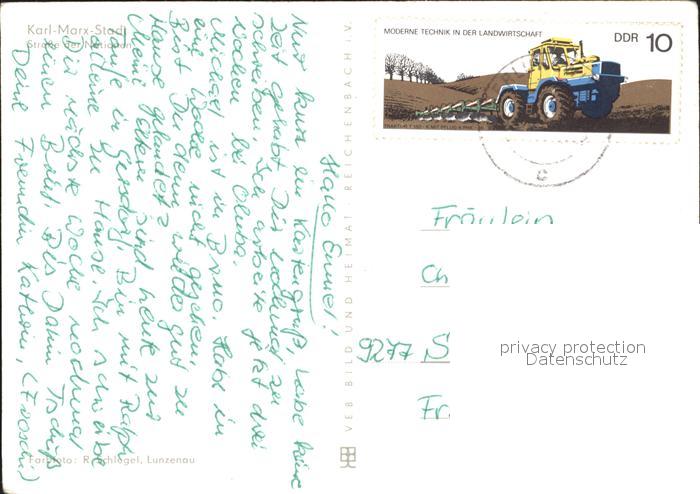 Karl-Marx-Stadt
Straße der Nationen
Hallo Emmel!
Nur kurz ein Kartengruß, habe keine
Zeit gehabt Dir nochmal zu
schreiben. Ich arbeite jetzt drei
Wochen bei
Michael ist in Brno. Habe ihn
eine Woche nicht gesehen.
Bist Du denn wieder gut zu
Hause gelandet?
Meine Eltern sind heute zur
in Gersdorf. Bin mit Ralph
alleine zu Hause. Ich schreibe
Dir nächste Woche nochmal
einen Brief. Bis Dahin Tschüß
Deine Freundin Kathrin,
Farbfoto: R. Schlegel, Lunzenau
VEB BILD UND HEIMAT · REICHENBACH i. V.
MODERNE TECHNIK IN DER LANDWIRTSCHAFT
DDR 10
Fräulein
Ch
9277 S
Fr.
privacy protection
Datenschutz